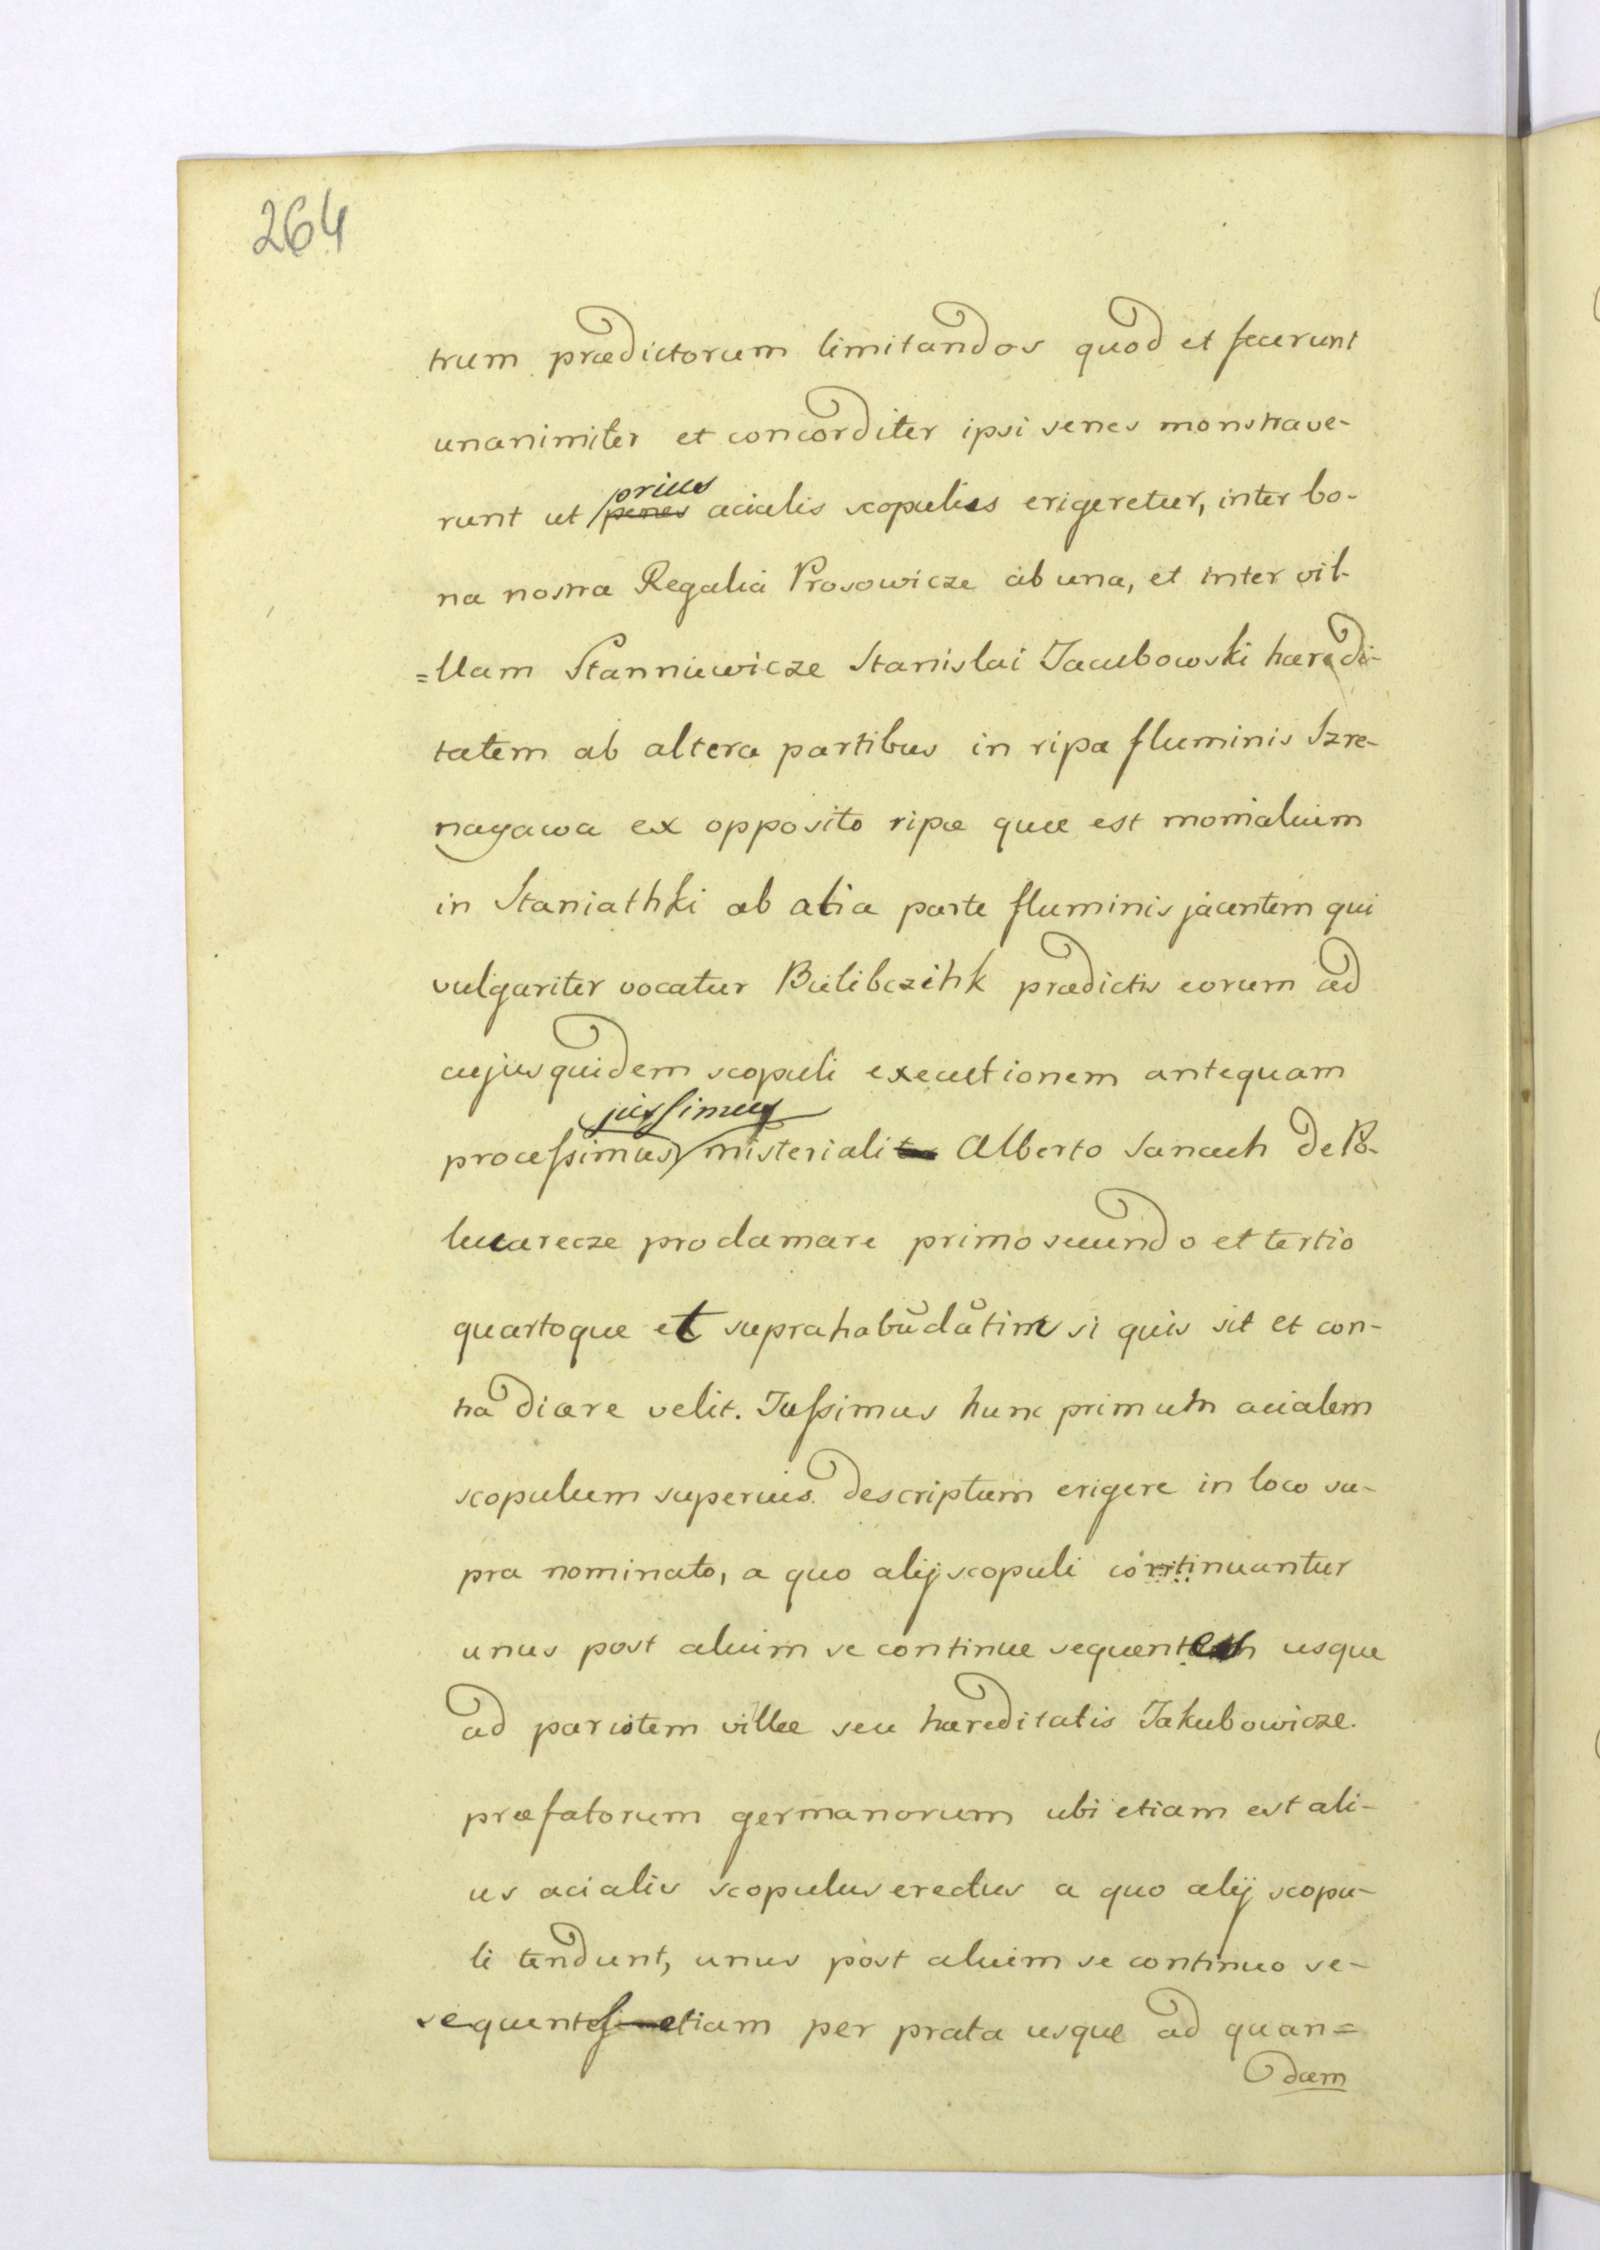 264
trum prædictorum limitandos quod et fecerunt
unanimiter et concorditer ipsi senes monstrave-
prius
runt ut penes acialis scopulus erigeretur, inter bo-
na nostra Regalia Prosowicze ab una, et inter vil-
=llam Stanniewicze Stanislai Jacubowski hæredi-
tatem ab altera partibus in ripa fluminis Szre-
nayawa ex opposito ripæ quæ est monialium
in Staniathki ab alia parte fluminis jacentem qui
vulgariter vocatur Bielibczihk prædictis eorum ad
cujusquidem scopuli executionem antequam
jussimus
processimus misteriali Alberto Sanach de Po-
lucarecze proclamare primo secundo et tertio
quartoque et suprahabūdātim si quis sit et con-
tradicere velit. Jussimus hunc primum acialem
scopulum superius descriptum erigere in loco su-
pra nominato, a quo alij scopuli continuantur
unus post alium se continue sequentes usque
ad parietem villæ seu hæreditatis Jakubowicze.
præfatorum germanorum ubi etiam est ali-
us acialis scopulus erectus a quo alij scopu-
li tendunt, unus post alium se continuo se-
sequentes etiam per prata usque ad quan=
dam